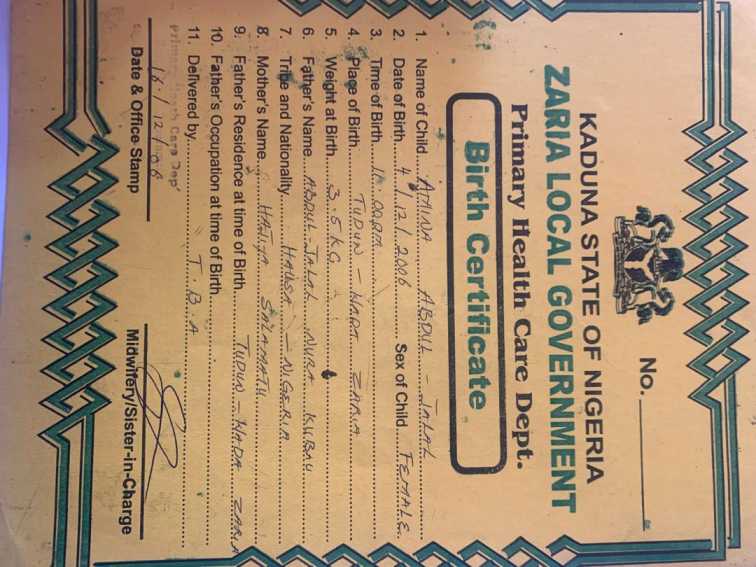 No.
KADUNA STATE OF NIGERIA
ZARIA LOCAL GOVERNMENT
Primary Health Care Dept.
Birth Certificate
1. Name of Child.... AMINA ABDUL - JALAL
2. Date of Birth.... 4 / 12 / 2006 Sex of Child.... FEMALE
3. Time of Birth.... 11.00am
4. Place of Birth.... TUDUN - WADA ZARIA
5. Weight at Birth.... 3.5KG
6. Father's Name.... ABDUL-JALAL NURA KUBAU
7. Tribe and Nationality.... HAUSA - NIGERIA
8. Mother's Name.... HAJIYA SALAMATU
9. Father's Residence at time of Birth.... TUDUN - WADA ZARIA
10. Father's Occupation at time of Birth....
11. Delivered by.... T.B.A
Primary Health Care Dep'
16 / 12 / 06
Date & Office Stamp
Midwifery/Sister-in-Charge